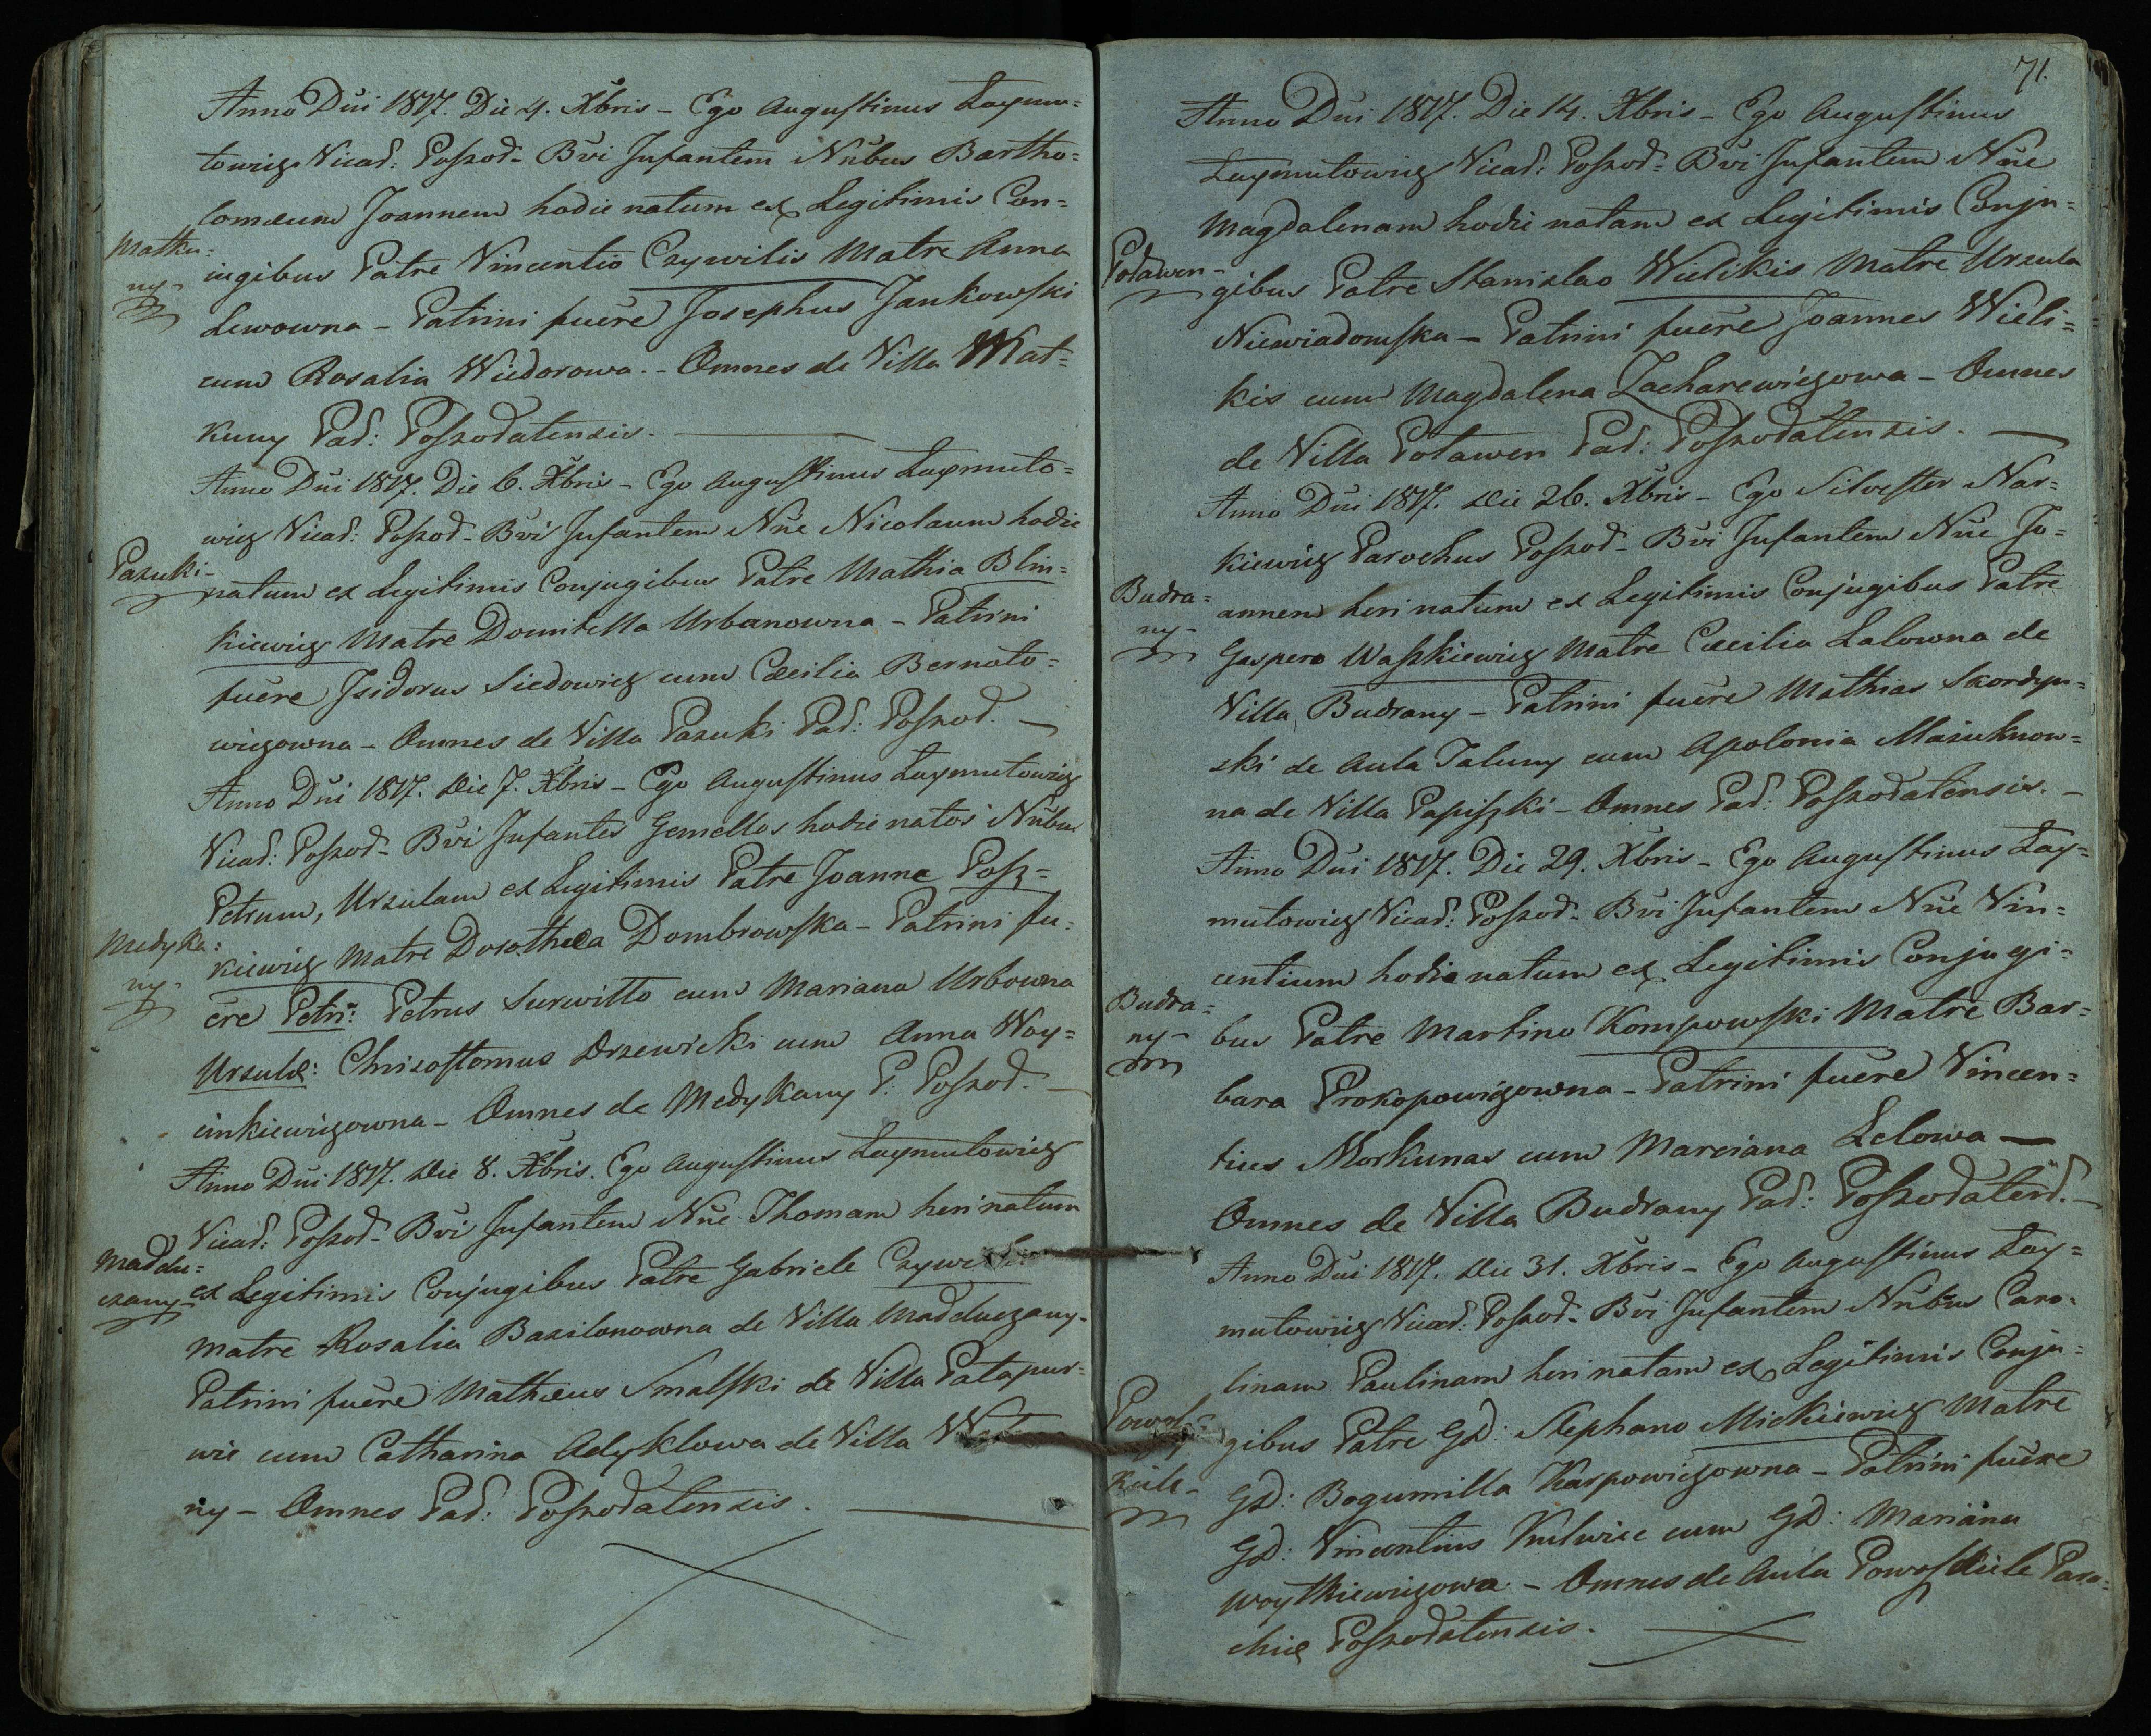 Anno Dni 1817. Die 4. Xbris - Ego Augustinus Laymu=
towicz Vicad: Poszod- Bvi Infantem Nnbus Bartho=
lomæum Joannem hodie natum ex Legitimis Con=
Matku=
ny-
iugibus Patre Vincentio Czywilis Matre Anna
Lewowna - Patrini fuere Josephus Jankowski
cum Rosalia Wiedorowa. - Omnes de Villa Mat=
kuny Pad: Poszodatensis.
Anno Dni 1817. Die 6. Xbris - Ego Augustinus Laymuto=
wicz Vicad: Poszod- Bvi Infantem Nne Nicolaum hodie
Pazuki-
natum ex Legitimis Conjugibus Patre Mathia Blin=
kiewicz Matre Domitella Urbanowna - Patrini
fuere Isidorus Siedowicz cum Cæcilia Bernato=
wiczowna - Omnes de Villa Pazuki Pad: Poszod.
Anno Dni 1817. Die 7. Xbris - Ego Augustinus Laymutowicz
Vicad: Poszod- Bvi Infantes Gemellos hodie natos Nnbus
Petrum, Urzulam ex Legitimis Patre Joanne Posz=
Medyka=
ny-
kiewicz Matre Dorothea Dombrowska - Patrini fu=
ere Petri: Petrus Surwitto cum Mariana Urbowna
Urzulæ: Chrizostomus Drzewicki cum Anna Woy=
cinkiewiczowna - Omnes de Medykany P: Poszod.
Anno Dni 1817. Die 8. Xbris. Ego Augustinus Laymutowicz
Vicad: Poszod- Bvi Infantem Nne Thomam heri natum
Maddu=
czany-
ex Legitimis Conjugibus Patre Gabriele
Matre Rosalia Bazilonowna de Villa Madduczany-
Patrini fuere Mathæus Smalski de Villa Patapur=
wie cum Catharina Adyklowa de Villa
ny - Omnes Pad: Poszodatensis.
71.
Anno Dni 1817. Die 14. Xbris - Ego Augustinus
Laymutowicz Vicad: Poszod- Bvi Infantem Nne
Magdalenam hodie natam ex Legitimis Conju=
Potawen-
gibus Patre Stanislao Wielikis Matre Urzula
Niewiadomska - Patrini fuere Joannes Wieli=
kis cum Magdalena Zacharewiczowa - Omnes
de Villa Potawen Pad: Poszodatensis.
Anno Dni 1817. Die 26. Xbris - Ego Silvester Nar=
kiewicz Parochus Poszod- Bvi Infantem Nne Jo=
Budra=
ny-
annem heri natum ex Legitimis Conjugibus Patre
Gaspero Waszkiewicz Matre Cæcilia Lalowna de
Villa Budrany - Patrini fuere Mathias Skordyn=
ski de Aula Taluny cum Apolonia Mazuknow=
na de Villa Papiszki - Omnes Pad: Poszodatensis. -
Anno Dni 1817. Die 29. Xbris - Ego Augustinus Lay=
mutowicz Vicad: Poszod- Bvi Infantem Nne Vin=
centium hodie natum ex Legitimis Conjugi=
Budra=
ny-
bus Patre Martino Kompowski Matre Bar=
bara Prokopowiczowna - Patrini fuere Vincen=
tius Morkunas cum Marciana Lelowa -
Omnes de Villa Budrany Pad: Poszodatens.
Anno Dni 1817. Die 31. Xbris - Ego Augustinus Lay=
mutowicz Vicad: Poszod- Bvi Infantem Nnbus Caro=
linam Paulinam heri natam ex Legitimis Conju=
kiele-
gibus Patre GD: Stephano Mickiewicz Matre
GD: Bogumilla Karpowiczowna - Patrini fuere
GD: Vincentius Kulwiec cum GD: Mariana
Woytkiewiczowa. - Omnes de Aula Powoszkiele Paro=
chiæ Poszodatensis.